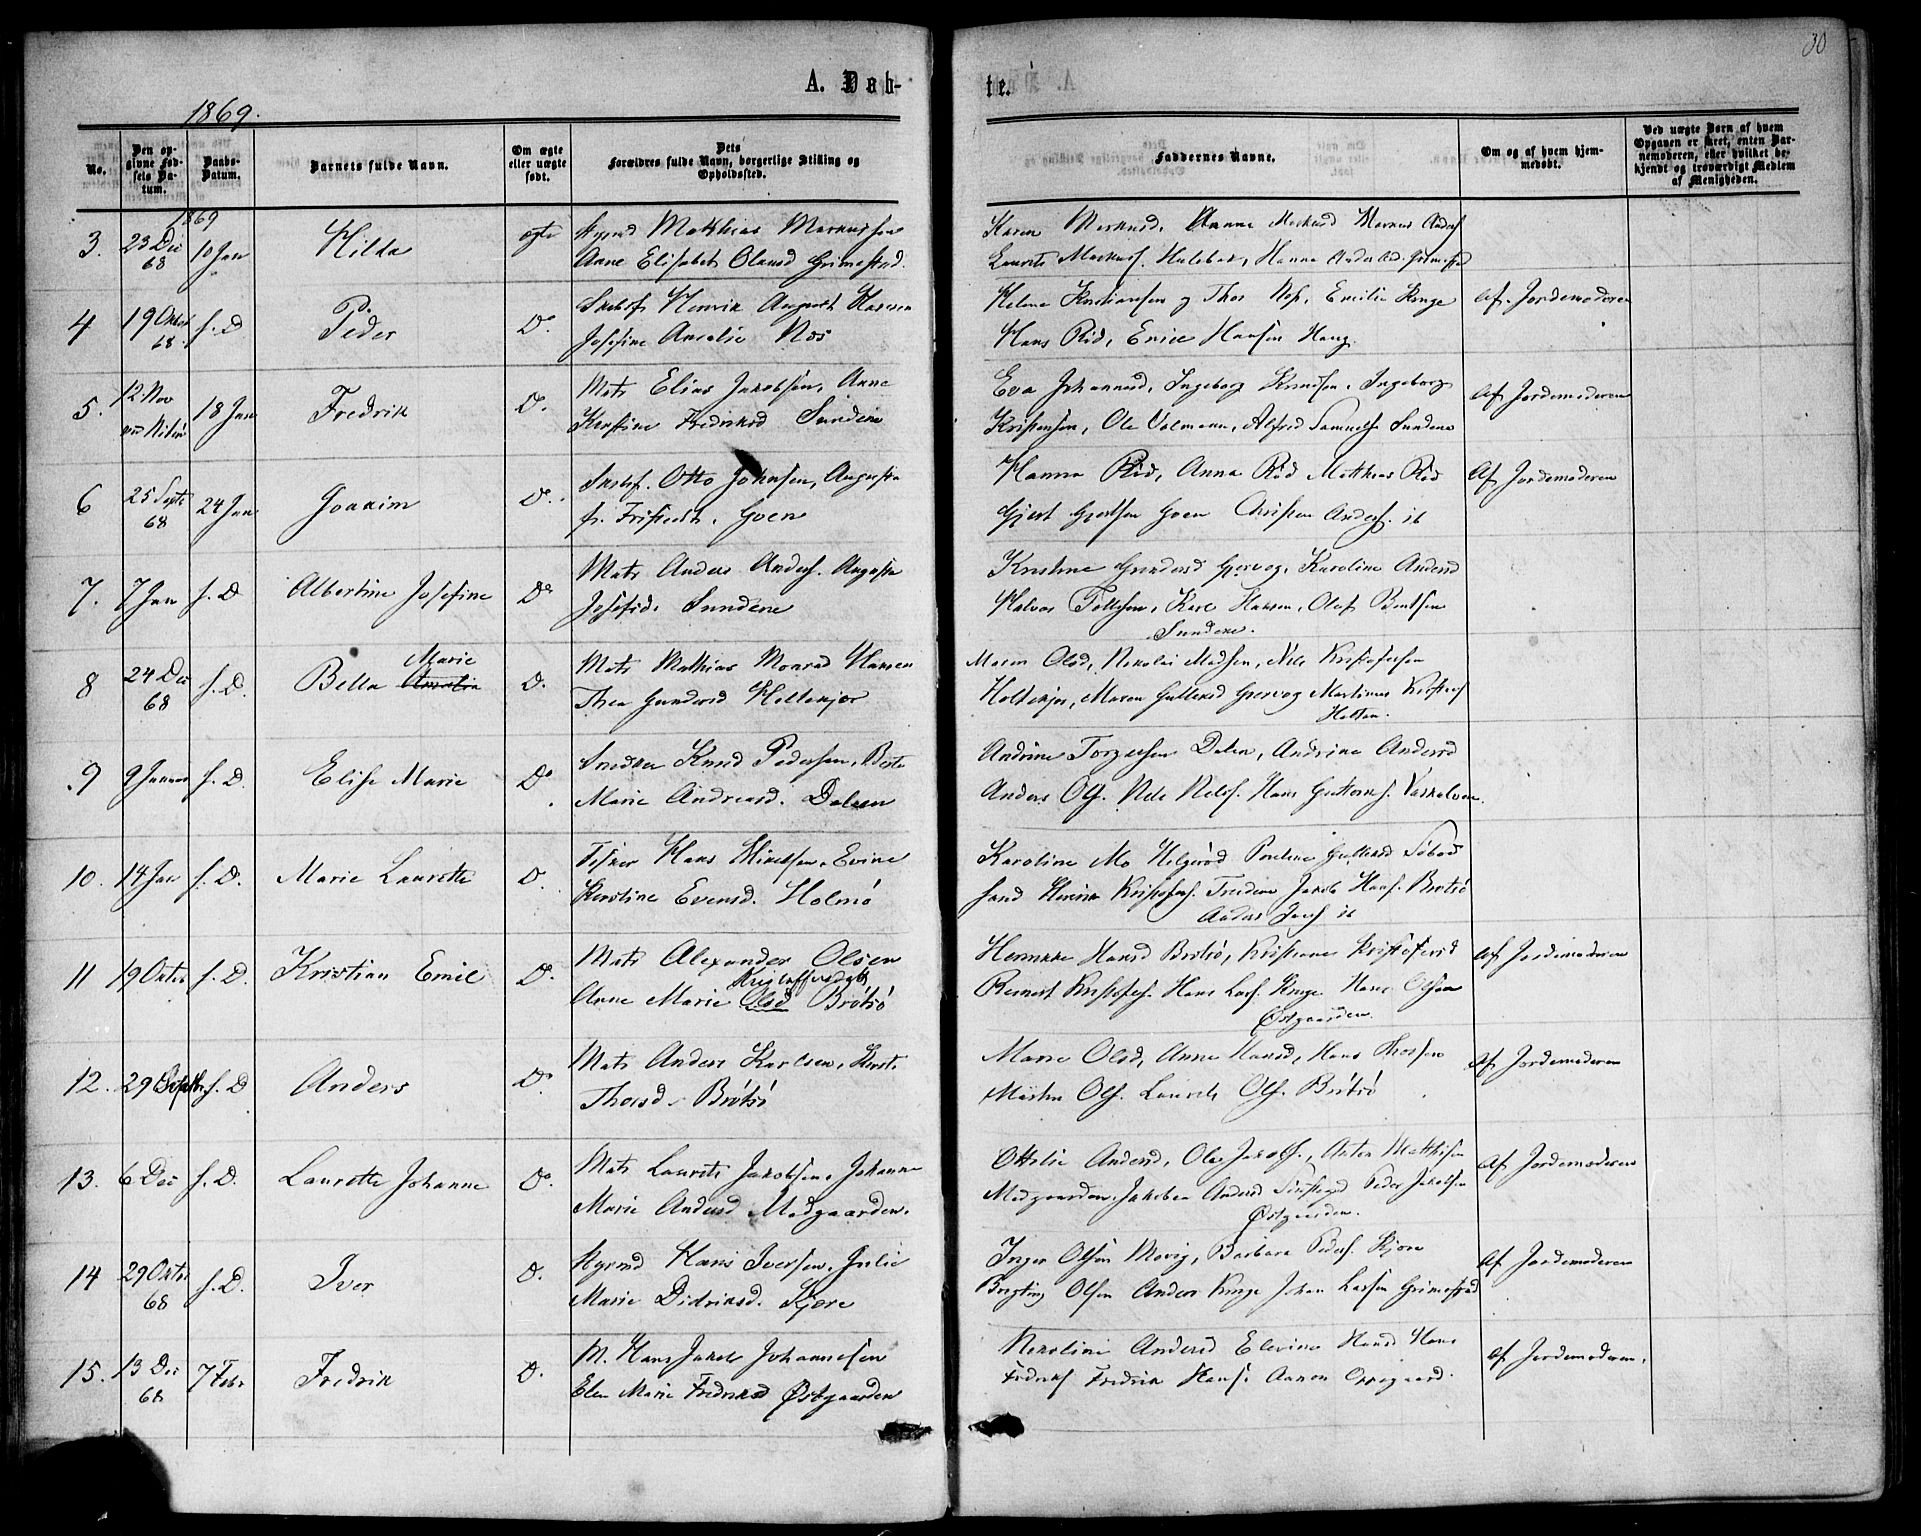 30
A. Døb-
te.
1869.
No.
Den opgivne Fødsels Datum.
Daabs-Datum.
Barnets fulde Navn.
Om ægte eller uægte født.
Dets Forældres fulde Navn, borgerlige Stilling og Opholdssted.
Faddernes Navne.
Om og af hvem hjemmedøbt.
Ved uægte Børn af hvem Opgaven er skeet, enten Barnemoderen, eller hvilket bekjendt og troværdigt Medlem af Menigheden.
1869
3. 23 Dec 68 10 Jan Hilda ægte Grmd Matthias Markussen
Anne Elisabet Olausd Grimestad.
Karen Markusd, Anna Markusd Markus Anders
Laurits Markuss. Hulebak, Hanna
4 19 Oktob 68 s. D Peder Do Henrik August Hansen
Josefine Amalie Nøs
Helene Kristiansen og Thor Nøs, Emilie Ringe
Hans Rød, Emil Hansen Haug.
af Jordemoderen
5. 12 Nov 18 Jan Fredrik Do. Matr Elias Jakobsen, Anne
Kirstine Fredriksd Sundene
Eva Johannesd, Ingeborg Knudsen, Ingeborg
Kristensen, Ole Valmann, Alfred Samuels Sundene
Af Jordemoderen
6 25 Septr 68 24 Jan Joakim Do. Otto Johnsen, Augusta
Goen
Hanna Rød, Anna Rød Matthias Rød
Gjert Gjertsen Goen Christian Anders. ib
Af Jordemoderen
7. 7 Jan s. D Albertine Josefine Do Matr Anders Anders. Augusta
Josefsd. Sundene
Kristine Gundersd Gjervog, Karoline Andersd
Halvor Tollefsen, Karl Hansen, Olaf Bentsen
Sundene.
8 24 Dec 68 s. D. Bella Amalia Marie D. Matr Mathias Monrad Hansen
Thea Gundersd Holtekjær
Maren Olsd, Nikolai Madsen, Nils Kristofersen
Holtekjær, Maren Gulliksd Gjervog Martinus Kristofs
Holten.
9 9 Januar s. D. Elise Marie Do Knud Pedersen, Berte
Marie Andreasd. Dalen
Andrine Torgersen Dalen, Andrine Andersd
Anders Ols. Nils Nilss. Hans Guttorms.
10. 14 Jan s. D. Marie Laurette D. Fisker Hans Mikelsen, Evine
Kirstine Evensd. Holmø
Karoline Mo Helgerød Pauline Gulliksd
sand Henrik Kristofers. Jakob Hans. Brøtsø
Anders Jans ib
11 19 Oktbr s. D. Kristian Emil D. Matr Alexander Olsen
Kristoffersdatr
Anne Marie Olsd Brøtsø
Henrikke Hansd Brøtsø, Kristiane Kristofersd
Reinert Kristofers. Hans Lars. Ringe Hans Olsen
Østgaarden.
af Jordemoderen
12. 29 Septbr s. D Anders Do Matr Anders Karlsen, Kirst.
Thorsd. Brøtsø
Marie Olsd, Anne Hansd, Hans Thorsen
Martin Ols. Laurits Ols. Brøtsø
Af Jordemoderen
13. 6 Dec s. D. Laurette Johanne Do. Matr Laurits Jakobsen, Johanne
Marie Andersd Medgaarden.
Ottilie Andersd, Ole Jakobs., Anton Matthisen
Medgaarden, Jakobea Andersd Peder Jakobsen
Østgaarden.
Af Jordemoderen
14 29 Oktbr 68 s. D. Iver D. Gyrmd Hans Iversen, Julie
Marie Didriksd. Kjære
Inger Olsen Mevig, Barbara Peders. Kjære
Olsen Anders Ringe Johan Larsen Grimestad
Af Jordemoderen
15. 13 Dec 68 7 Febr Fredrik D. M. Hans Jakob Johannesen
Elen Marie Fredriksd Østgaarden
Nikoline Andersd Elevine Hansd Hans
Fredriks Fredrik Hans.
Af Jordemoderen.